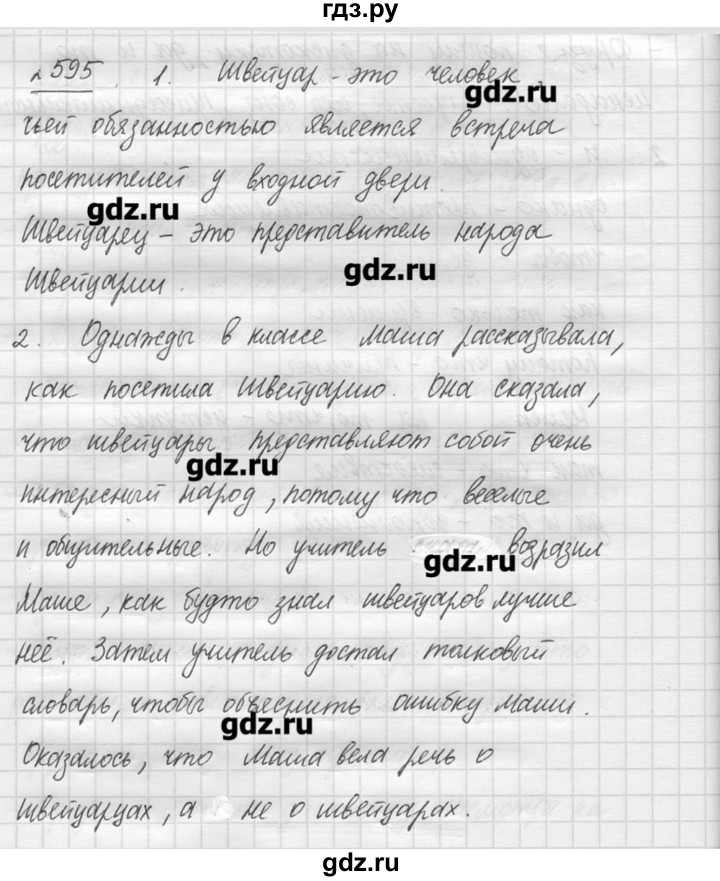 гдз.ру
№595. 1. Швейцар - это человек,
gdz.ru
чьей обязанностью является встреча
посетителей у входной двери.
gdz.ru
Швейцарец - это представитель народа
gdz.ru
Швейцарии.
2. Однажды в классе Маша рассказывала,
как посетила Швейцарию. Она сказала,
что швейцары представляют собой очень
gdz.ru
интересный народ, потому что веселые
и общительные. Но учитель возразил
gdz.ru
Маше, как будто знал швейцаров лучше
неё. Затем учитель достал толковый
словарь, чтобы объяснить ошибку Маши.
gdz.ru
Оказалось, что Маша вела речь о
швейцарцах, а не о швейцарах.
gdz.ru